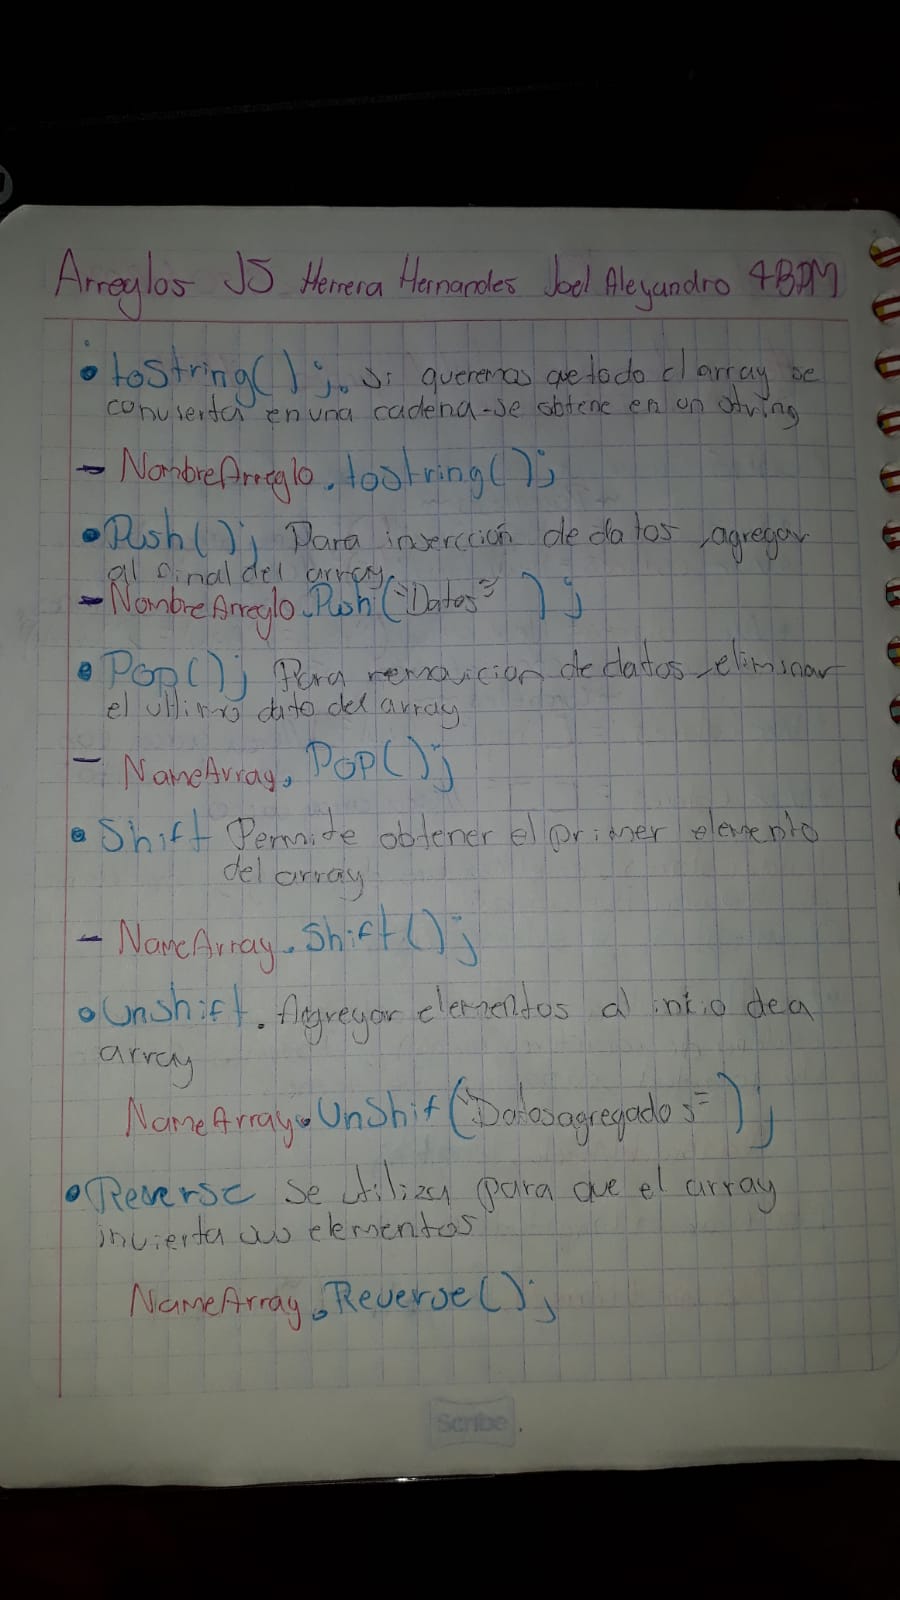 Arreglos JS Herrera Hernandes Joel Aleyandro 4BPM
• toString( ) ; . Si queremos que todo el array se
convierta en una cadena - se obtene en un string
- NombreArreglo . tostring( ) ;
• Push( ) ; Para insercción de datos , agregar
al final del array
- NombreArreglo . Push ( "Datos" ) ;
• Pop( ) ; Para remouicion de datos , eliminar
el ultimo dato del array
- NameArray . Pop( ) ;
• Shift Permite obtener el primer elemento
del array
- NameArray . Shift( ) ;
• Unshift . Agregar elementos al inicio de a
array
NameArray . UnShif ( "Datosagregados" ) ;
• Reverse se utiliza para que el array
invierta sus elementos
NameArray . Reverse( ) ;
Scribe